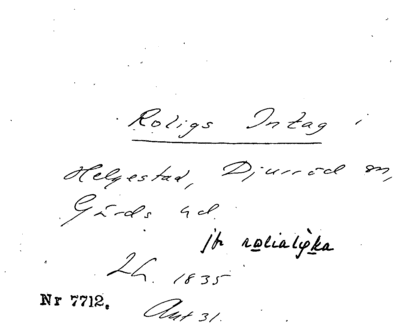 Roligs Intag i
Helgestad, Djurröd sn,
Gärds hd.
jfr
Lh. 1835
Nr 7712.
Akt 31.